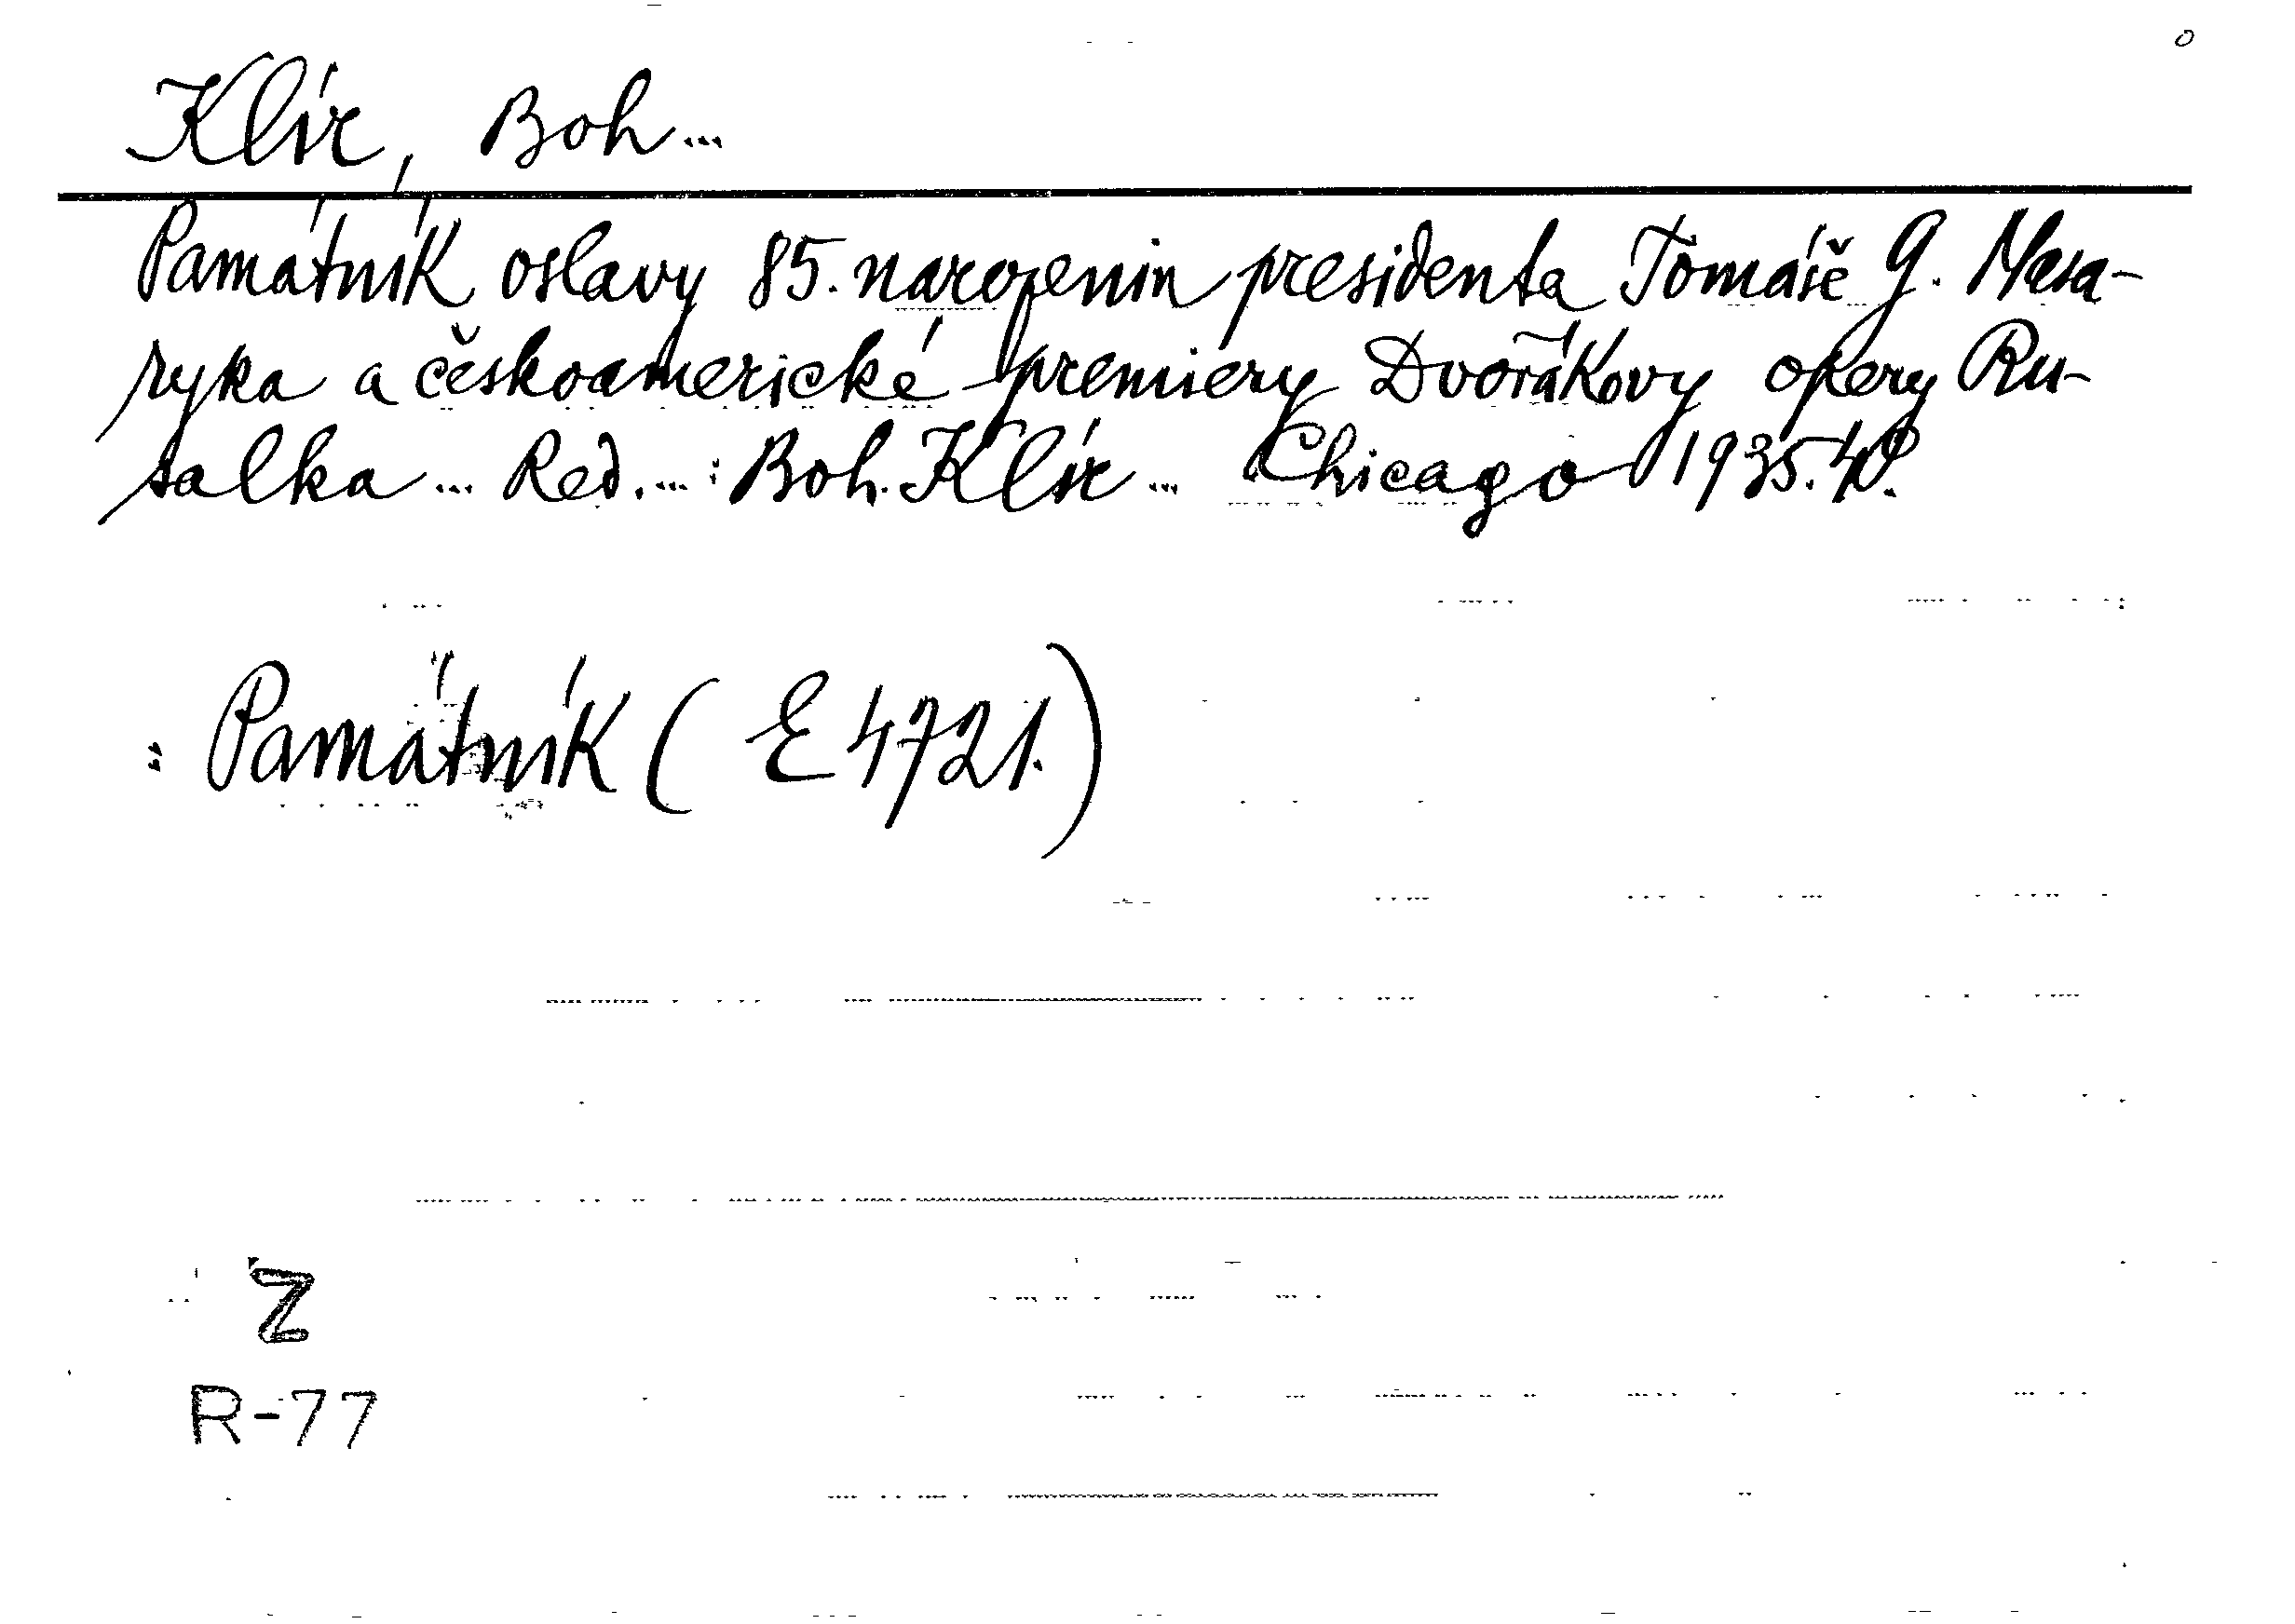 Klír, Boh...
Památník oslavy 85. narozenin presidenta Tomáše G. Masa-
ryka a českoamerické premiéry Dvořákovy opery Ru-
salka ... Red. ... : Boh. Klír ... Chicago 1935. 4°.
: Památník (E 4721.)
Z
R-77